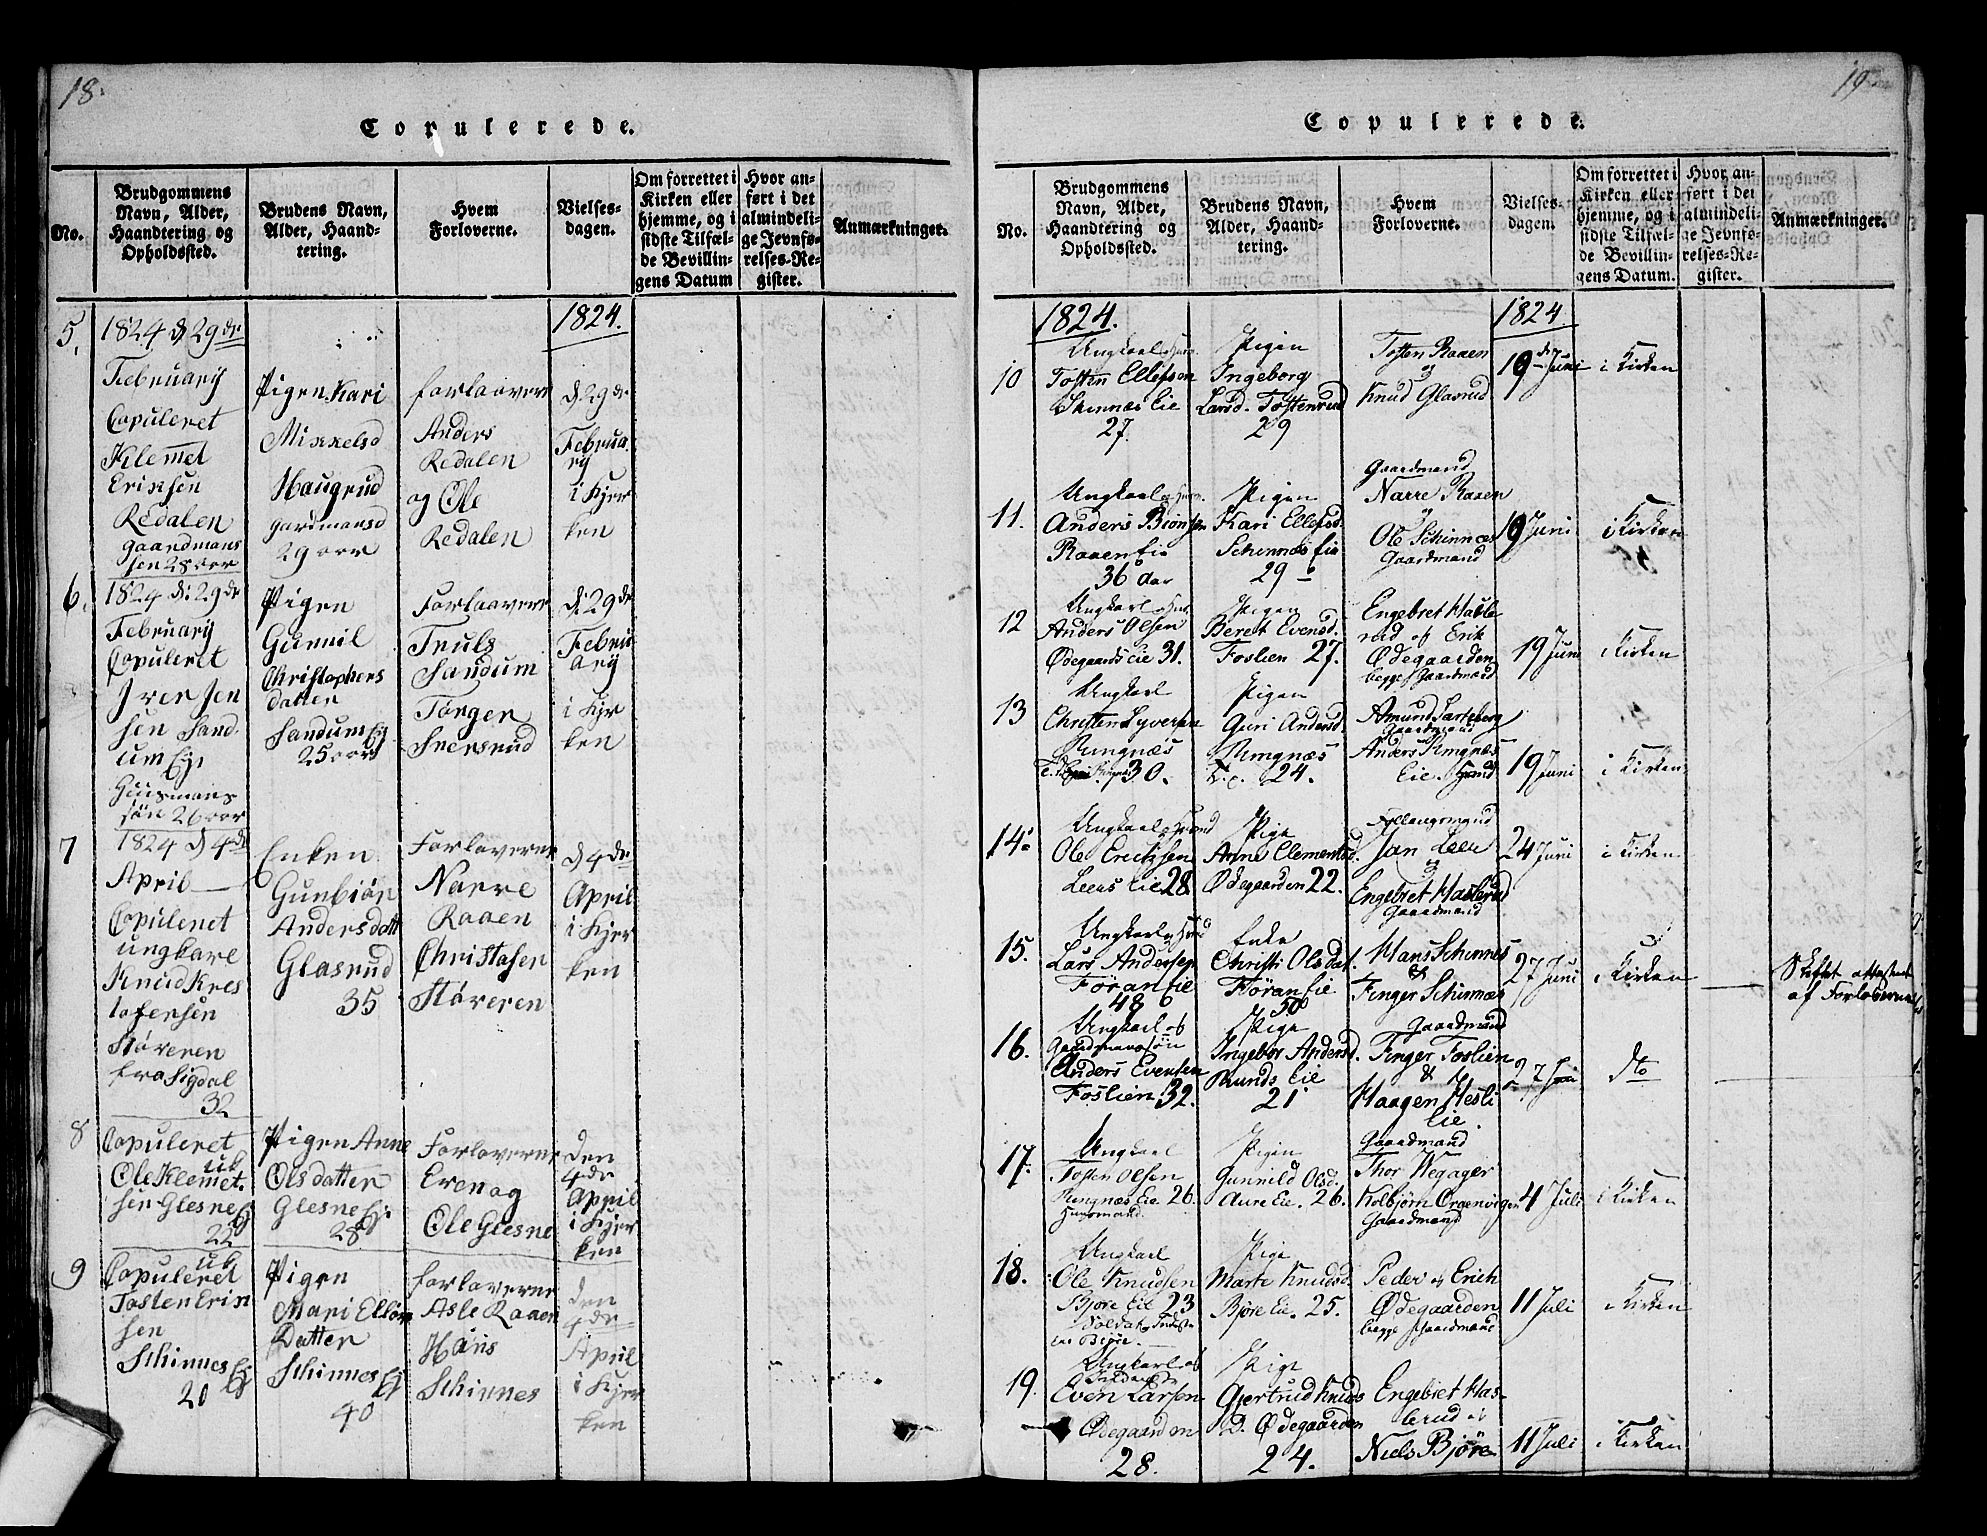 18.
Copulerede.
No.
Brudgommens
Navn, Alder,
Haandtering og
Opholdssted.
Brudens Navn,
Alder, Haand-
tering.
Hvem
Forloverne.
Vielses-
dagen.
Om forrettet i
Kirken eller
hjemme, og i
sidste Tilfæl-
de Bevillin-
gens Datum
Hvor an-
ført i det
almindeli-
ge Jevnfø-
relses-Re-
gister.
Anmærkninger.
1824.
5.
1824 d 29de
Februarij
Copuleret
Klemmet
Erixsen
Redalen
gaardmans
sen 28 oor
Pigen Kari
Mixkelsd
Haugrud
gardmansd
29 oor
forlaavere
Anders
Redalen
og Ole
Redalen
d 29de
Februa
ry
i Kjer
ken
6.
1824 d: 29de
Februarij
Copuleret
Iver Jen
sen Sand
um Eye
Huusmans
søn 26 oor
Pigen
Gunnil
Christophers
datter
Sandum Ey
25 oor
Forlaavere
Truls
Sandum
Torger
Snersrud
d: 29de
Febru
arij
i Kjr
ken
7
1824 d 4de
April
Copuleret
ungkarl
Knud Kres
tofersen
Støveren
fra Sigdal
32
Enken
Gunbiør
Anders datt
Glasrud
35
Forlaverne
Narve
Raaen
Christafer
Støveren
d 4de
April
i Kjer
ken
8
Copuleret
uk
Ole Klemet
sen Glesne Ey
22
Pigen Anne
Olsdatter
Glesne Ej:
28
Forlaverne
Even og
Ole Glesne
den
4de
April
i Kjer
ken
9
Copuleret
uk
Tosten Erix
sen
Skinnes Ey
20
Pigen
Mari Ellov
Datter
Skinnes Ey
40
forlaverne
Asle Raaen
Hans
Skinnes
den
4de
April
i Kjer
ken
19
Copulerede.
No.
Brudgommens
Navn, Alder,
Haandtering og
Opholdssted.
Brudens Navn,
Alder, Haand-
tering.
Hvem
Forloverne.
Vielses-
dagen.
Om forrettet i
Kirken eller
hjemme, og i
sidste Tilfæl-
de Bevillin-
gens Datum.
Hvor an-
ført i det
almindeli-
ge Jevnfø-
relses-Re-
gister.
Anmærkninger.
1824.
1824
10
Ungkarl
Tosten Ellefsen
Skinnæs Eie
27.
Pigen
Ingeborg
Larsd. Tostenrud
29
Tosten Raaen
og
Knud Glasrud
19de Juni
i Kirken
11.
Ungkarl
Anders Biørnsen
Raaen Eie
36 aar
Pigen
Kari Ellefsd.
Schinnæs Eie
29
Gaardmand
Narve Raaen
og
Ole Schinnæs
Gaardmand
19 Juni
i Kirken
12
Ungkarl
Anders Olsen
Ødegaards Eie 31.
Pigen
Beret Evensd.
Foslien 27.
Engebret Hasle
rud og Erik
Ødegaarden
begge Gaardmænd
19 Juni
i Kirken
13
Ungkarl
Christen Syversen
Ringnæs
30.
Pigen
Guri Andersd.
Ringnæs
24.
Amund Sarteberg
Gaardmand
Anders Ringnæs
Eie.
19 Juni
i Kirken
14.
Ungkarl
Ole Ericksen
Leens Eie 28
Pige
Anne Clementsd.
Ødegaarden 22.
Jan Leen
og
Engebret Haslerud
Gaardmand
24 Juni
i Kirken
15.
Ungkarl
Lars Andersen
Føran Eie
48
Enke
Christi Olsdat.
Føran Eie
50
Hans Schinnes
&
Finger Schinnæs
27 Juni
i Kirken
Skiftet attesteret
af Forloverne
16.
Ungkarl og
Gaardmandssøn
Anders Evensen
Foslien 32.
Pige
Ingebor Andersd.
Runds Eie
21
Gaardmand
Finger Foslien
&
Haagen Hesli
Eie.
27 Juni
do
17.
Ungkarl
Tosten Olsen
Ringnæs Eie 26.
Huusmand
Pigen
Gunnild Olsd.
Aure Eie. 26.
Gaardmand
Thor Wegager
Kolbjørn Ørgenvigen
Gaardmand
4 Juli
i Kirken
18.
Ungkarl
Ole Knudsen
Bjøre Eie 23
Pige
Marte Knudsd.
Bjøre Eie. 25.
Peder og Erich
Ødegaarden
begge Gaardmænd
11 Juli
i Kirken
19.
Ungkarl og
Even Larsen
Ødegaarden
28.
Pige
Gjertrud Knuds
D. Ødegaarden
24.
Engebret Has-
lerud og
Niels Bjøre
11 Juli
i Kirken